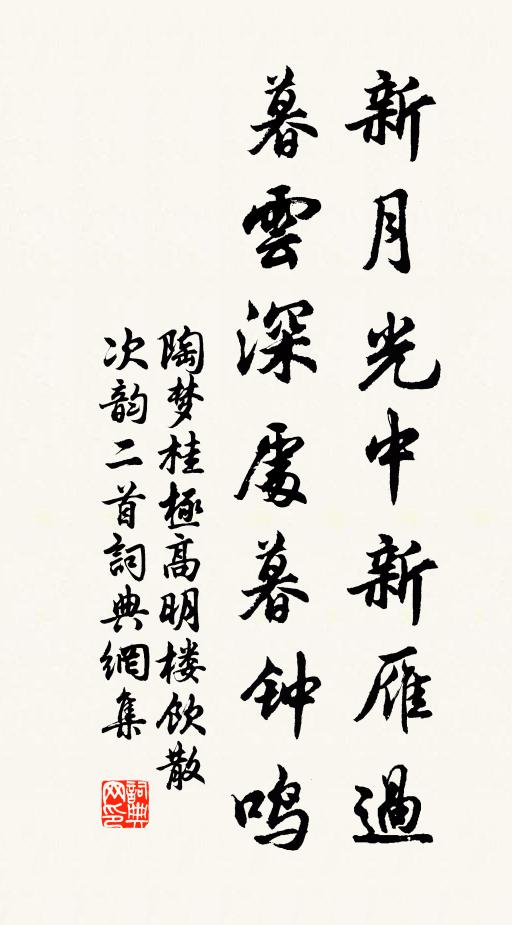 新月光中新雁過
暮雲深處暮钟鸣
陶梦桂極高明楼飲散
次韵二首詞典網集
詞典网印